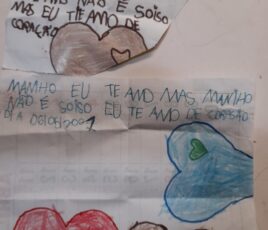 NÃO É SOISO
MAS EU TE AMO DE
CORAÇÃO
MAMHO EU TE AMO MAS MAMHO
NÃO É SOISO EU TE AMO DE CORASÃO
DIA 06/08/2001